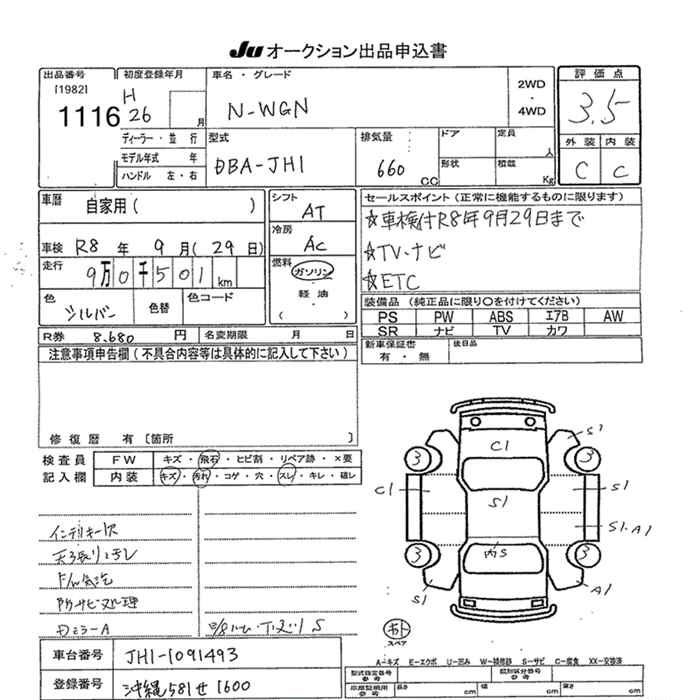 JU オークション出品申込書
出品番号 初度登録年月 車名・グレード 評価点
[1982] 1116 H 26 月 N-WGN 2WD ・ 4WD 3.5
ディーラー・並行 型式 排気量 ドア 定員 人 外装 内装
モデル年式 年 DBA-JH1 660 CC 形状 積載 Kg C C
ハンドル 左・右
車歴 自家用 ( ) シフト AT セールスポイント (正常に機能するものに限ります)
冷房 AC ☆車検付R8年9月29日まで
車検 R8 年 9 月 ( 29 日) ☆TV、ナビ
走行 9万0千501 km 燃料 ガソリン・軽油 ( ) ☆ETC
色 シルバー 色替 色コード 装備品 (純正品に限り〇を付けてください)
PS PW ABS エアB AW
SR ナビ TV カワ
R券 8.680 円 名変期限 月 日 新車保証書 有・無 後日品
注意事項申告欄 (不具合内容等は具体的に記入して下さい)
修復歴 有 [箇所 ]
検査員 FW キズ・飛石・ヒビ割・リペア跡・×要
記入欄 内装 キズ・汚れ・コゲ・穴・スレ・キレ・破レ
C1 S1 3 3
C1 S1 S1
S1.A1
内S 3 3
S1 A1
インテリキー1ケ
スペア
車台番号 JH1-1091493
登録番号 沖縄581せ1600
A-キズ E-エクボ U-凹み W-補修跡 S-サビ C-腐食 XX-交換済
型式指定番号 参考 類別区分番号 参考
長さ cm 幅 cm 高さ cm